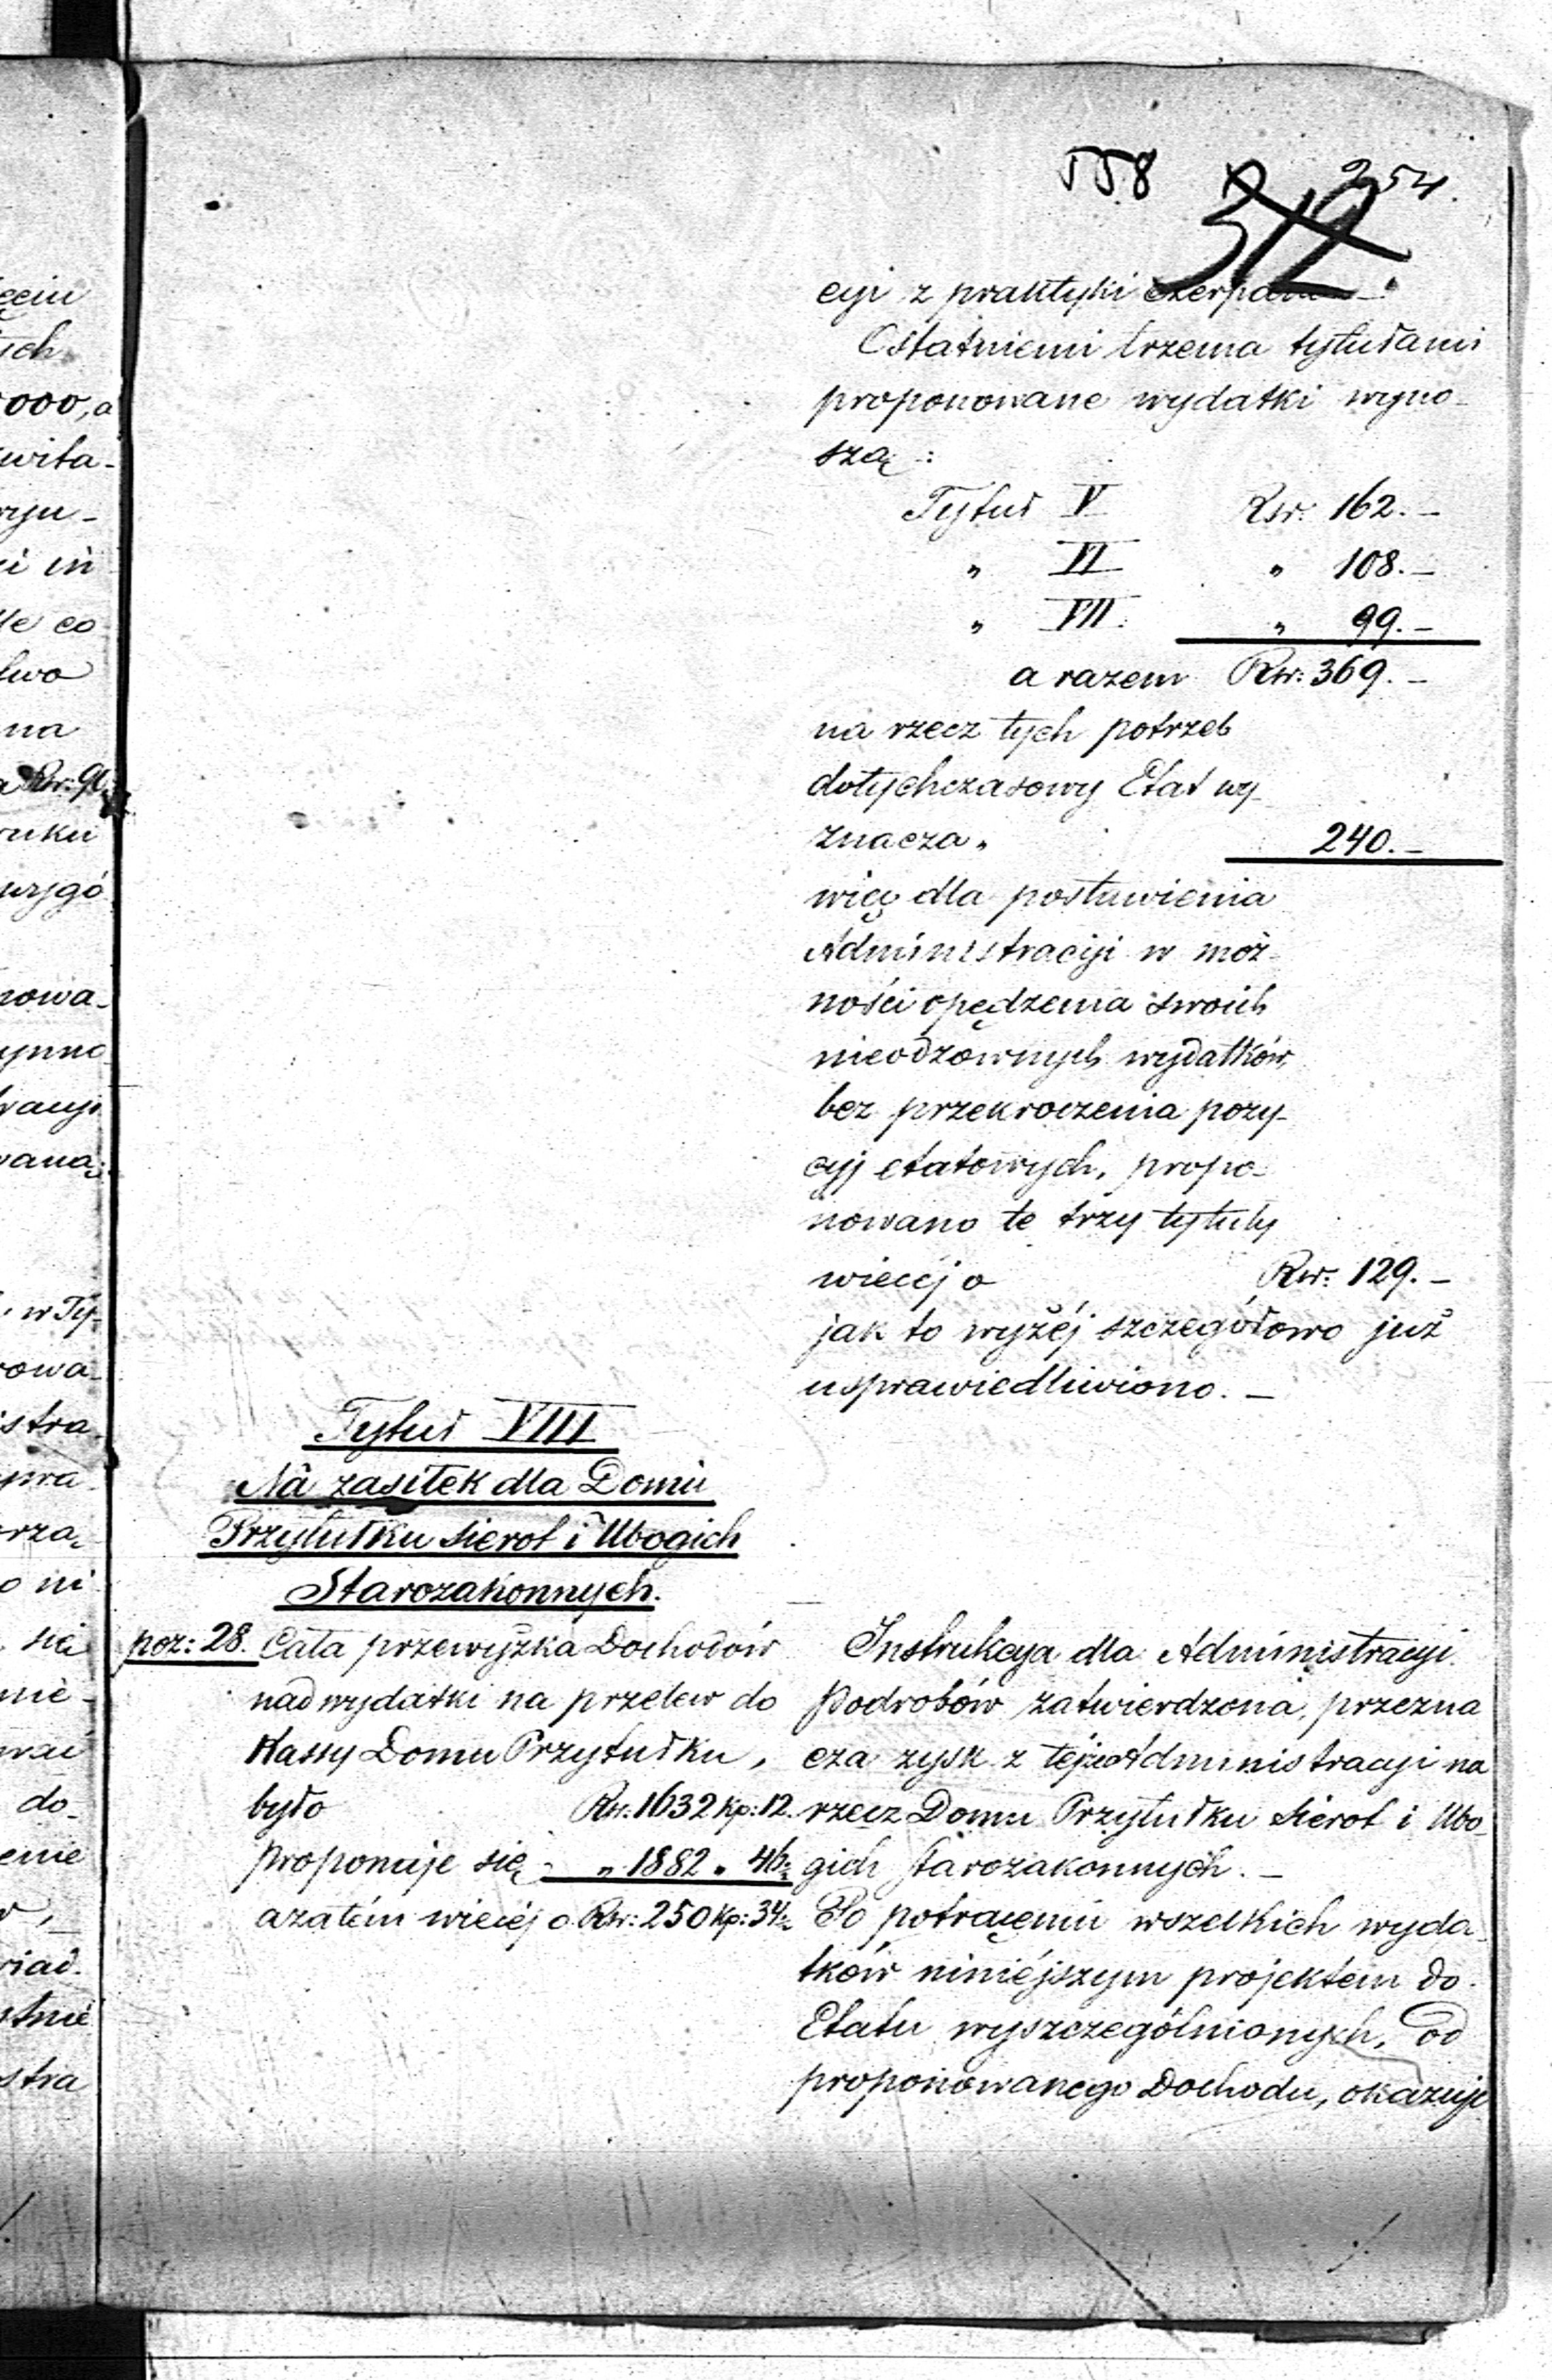 558 254.
312.
cyi z praktyki czerpana –
Ostatniemi trzema tytułami
proponowane wydatki wyno-
szą:
Tytuł V Rsr: 162. –
„ VI „ 108. –
„ VII. „ 99. –
a razem Rsr: 369. –
na rzecz tych potrzeb
dotychczasowy Etat wy-
znacza „ 240. –
więc dla postawienia
Administracyi w moż-
ności opędzenia swoich
nieodzównych wydatków,
bez przekroczenia pozy-
cyj etatowych, propo-
nowano te trzy tytuły
więcéj o Rsr: 129. –
jak to wyżéj szczegółowo już
usprawiedliwiono. –
Tytuł VIII
Na zasiłek dla Domu
Przytułku sierot i Ubogich
Starozakonnych.
poz: 28. Cała przewyżka Dochodów
nad wydatki na przelew do
Kassy Domu Przytułku,
było Rsr: 1632 Kp: 12.
proponuje się „ 1882 „ 46½
azatém więcéj o Rsr: 250 Kp: 34½
Instrukcya dla Administracyi
Podrobów zatwierdzona, przezna
cza zysk z tejże Administracyi na
rzecz Domu Przytułku sierot i Ubo-
gich starozakonnych. –
Po potrąceniu wszelkich wyda-
tków niniéjszym projektem do
Etatu wyszczególnionych, od
proponowanego Dochodu, okazuje
ęciu
ych
000, a
kwita-
na
nowa-
wana;
w Ty-
istra
się
do-
stra